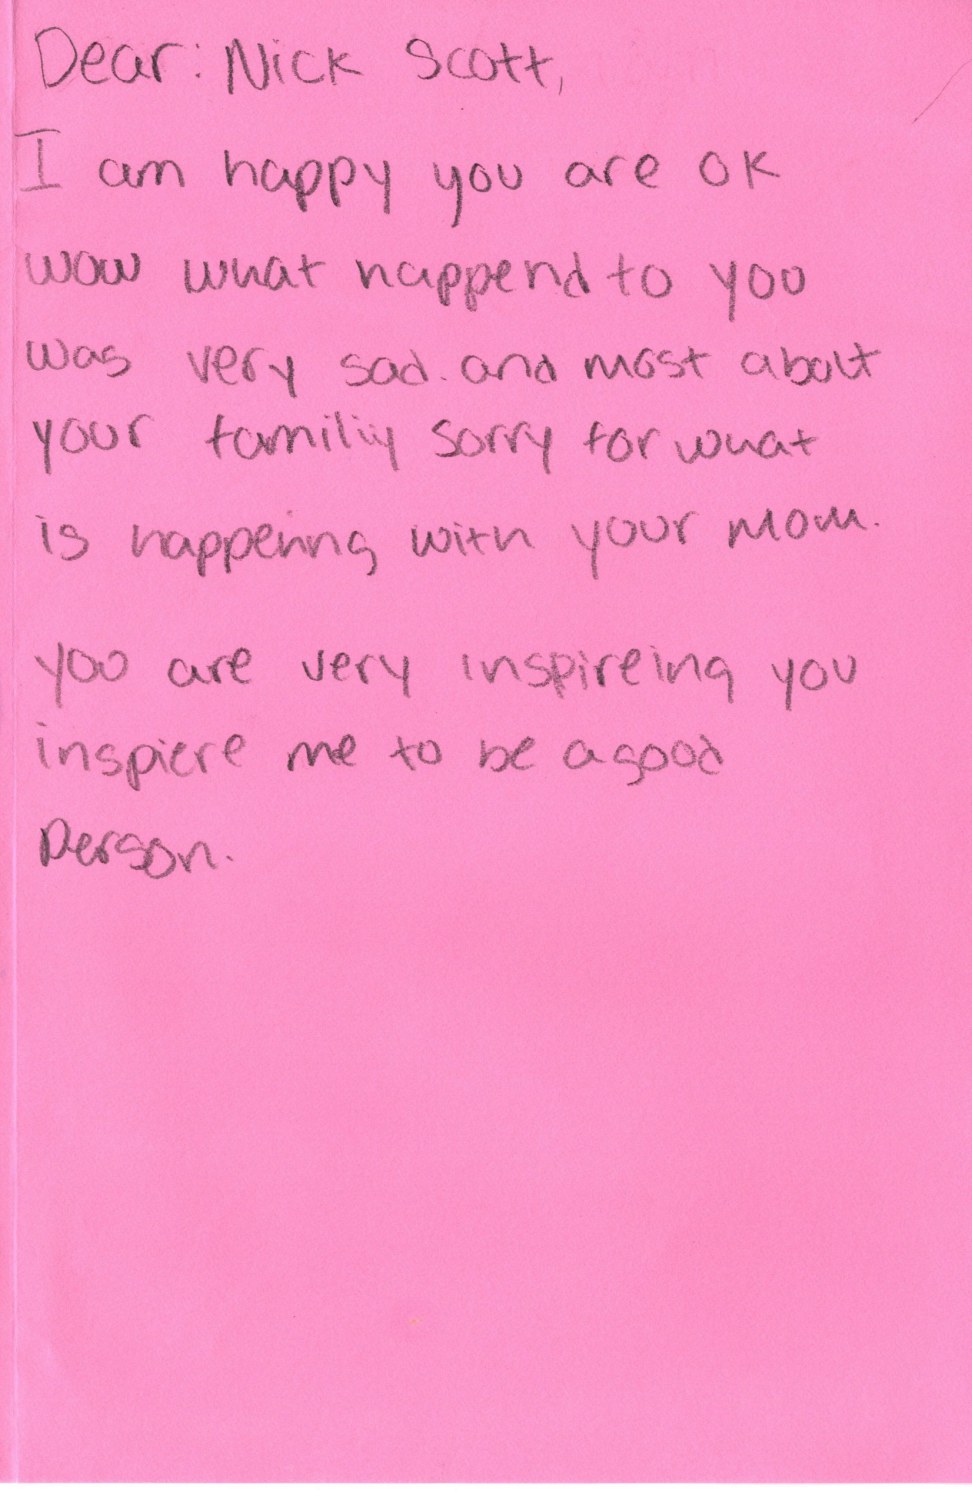 Dear: Nick Scott,
I am happy you are ok
wow what happend to you
was very sad. and most about
your familiy sorry for what
is happening with your mom.
you are very inspireing you
inspiere me to be a good
person.